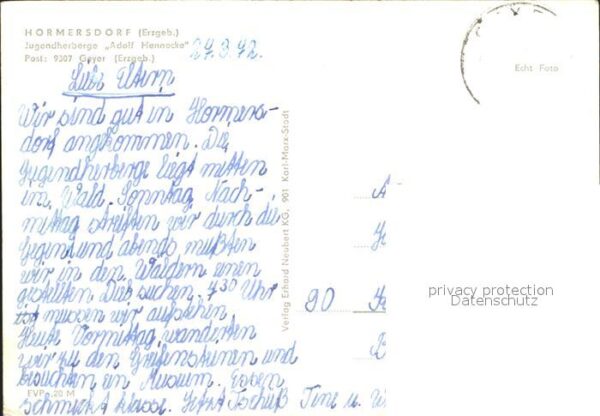 HORMERSDORF (Erzgeb.)
Jugendherberge „Adolf Hennecke"
Post: 9307 Geyer (Erzgeb.)
27.3.72.
Echt Foto
Liebe Eltern
Wir sind gut in Hormers-
dorf angkommen. Die
Jugendherberge liegt mitten
im Wald. Sonntag Nach-
mittag streiften wir durch die
Gegend und abends mußten
wir in den Wäldern einen
gestellten Dieb suchen. 7 30 Uhr
müssen wir aufstehen.
Heute Vormittag wanderten
wir zu den Greifensteinen und
besuchten ein Museum. Essen
schmeckt klasse. Jetzt Tschüß Tine u.
Verlag Erhard Neubert KG, 901 Karl-Marx-Stadt
90
EVP -,20 M
privacy protection
Datenschutz